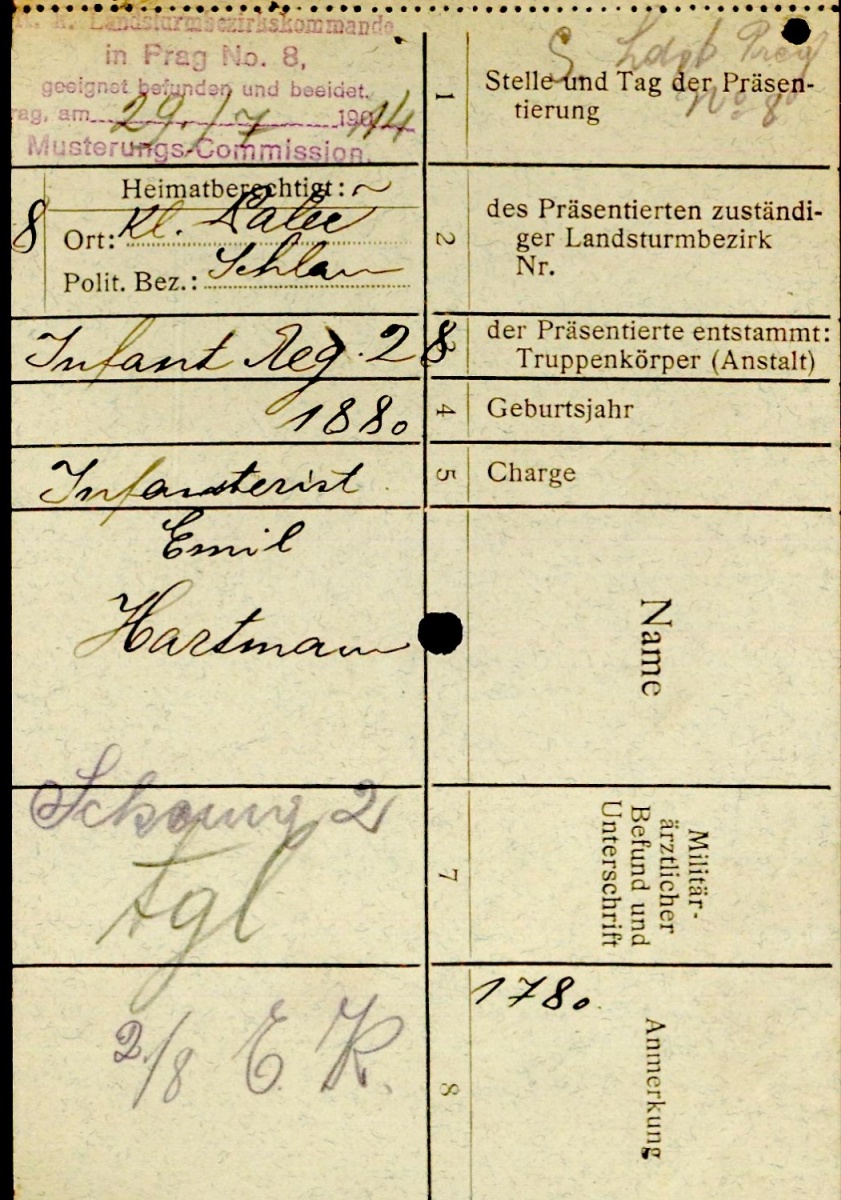 K. K. Landsturmbezirkskommando
in Prag No. 8,
geeignet befunden und beeidet.
rag, am 29./7 190 14
Musterungs-Commission.
1
Stelle und Tag der Präsen-
tierung
Prag
No 8
Heimatberechtigt:
8
Ort: Kl.
Polit. Bez.: Schlan
2
des Präsentierten zuständi-
ger Landsturmbezirk
Nr.
Infant Reg. 28
der Präsentierte entstammt:
Truppenkörper (Anstalt)
1880
4
Geburtsjahr
Infanterist
5
Charge
Emil
Hartman
Name
2
tgl
7
Militär-
ärztlicher
Befund und
Unterschrift
2/8 E. K.
8
1780
Anmerkung